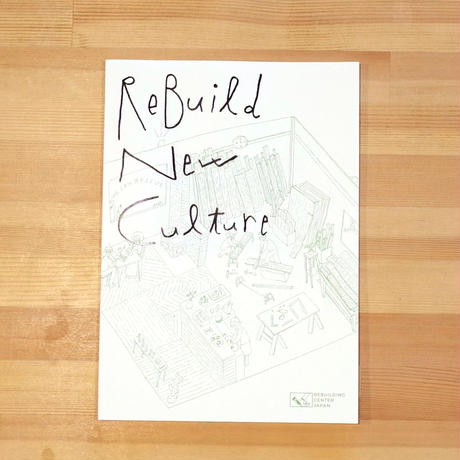 ReBuild
New
Culture
REBUILDING
CENTER
JAPAN